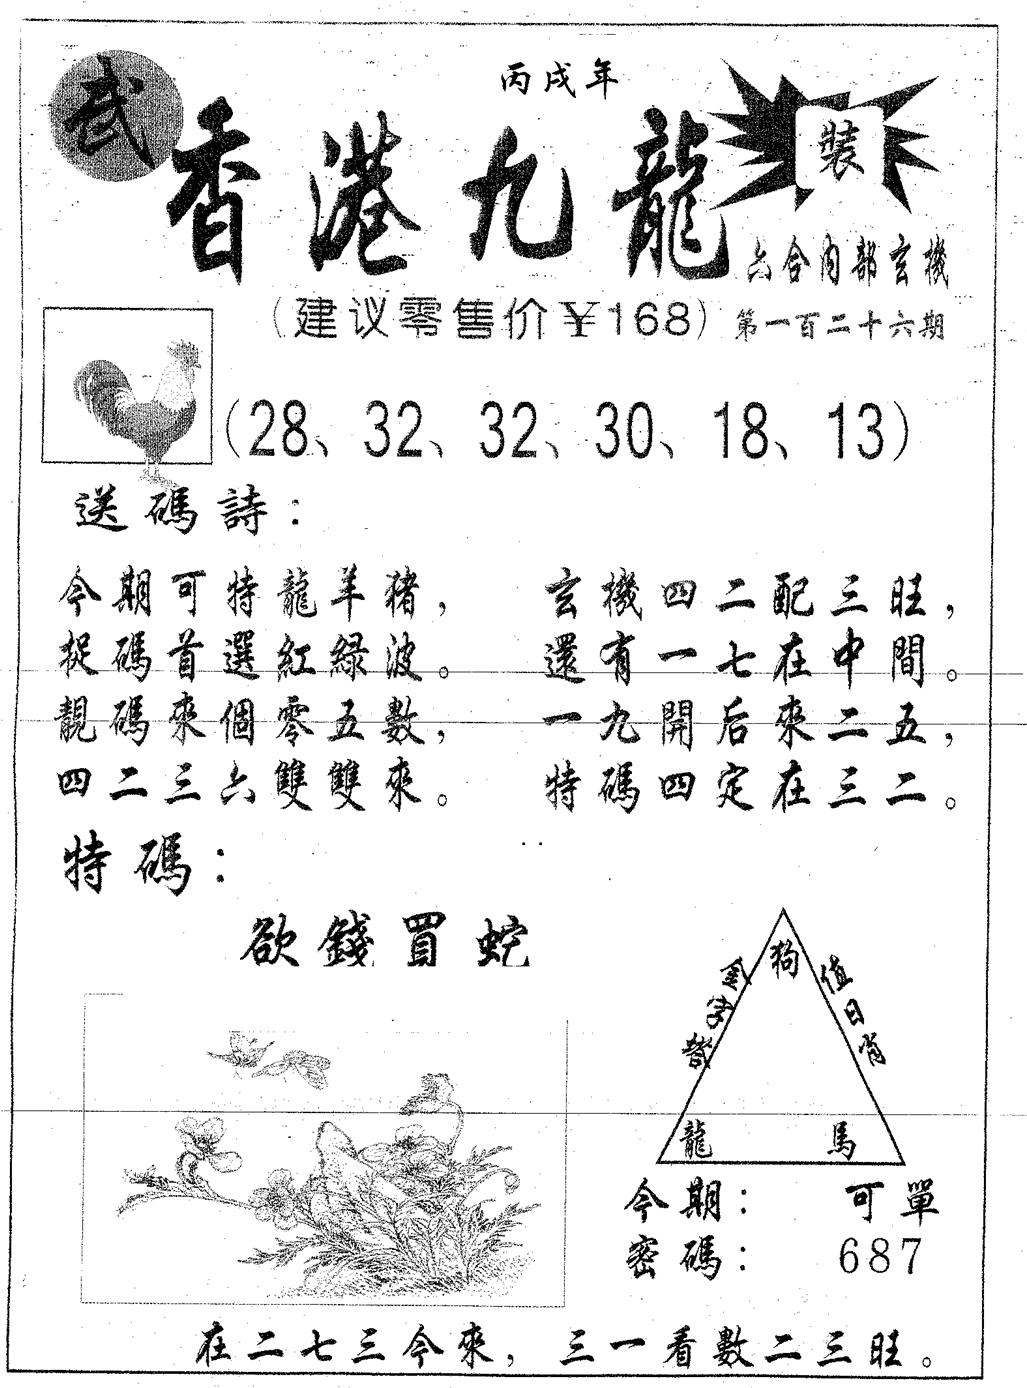 武
丙戌年
香港九龍
裝
六合內部玄機
(建议零售价￥168)
第一百二十六期
(28、32、32、30、18、13)
送碼詩：
今期可特龍羊猪，
捉碼首選紅綠波。
靚碼來個零五數，
四二三六雙雙來。
玄機四二配三旺，
還有一七在中間。
一九開后來二五，
特碼四定在三二。
特碼：
欲錢買蛇
金字塔
狗
值日肖
龍 馬
今期： 可單
密碼： 687
在二七三今來，三一看數二三旺。